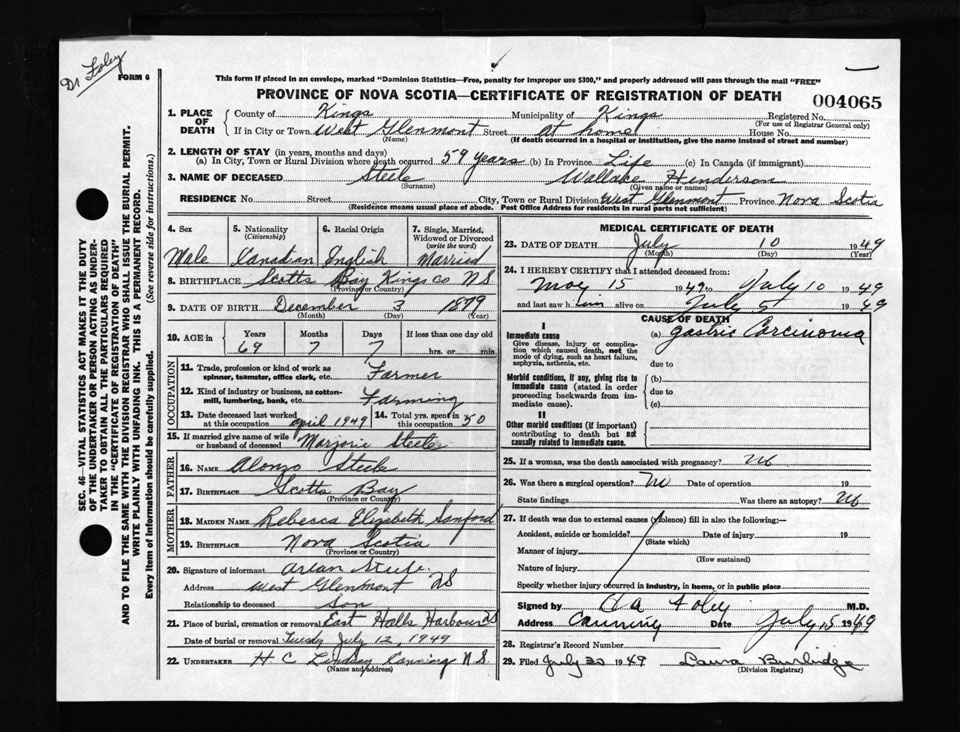 Dr Foley
FORM 6
This form if placed in an envelope, marked "Dominion Statistics—Free, penalty for improper use $300," and properly addressed will pass through the mail "FREE"
PROVINCE OF NOVA SCOTIA—CERTIFICATE OF REGISTRATION OF DEATH
004065
SEC. 46—VITAL STATISTICS ACT MAKES IT THE DUTY
OF THE UNDERTAKER OR PERSON ACTING AS UNDER-
TAKER TO OBTAIN ALL THE PARTICULARS REQUIRED
IN THE "CERTIFICATE OF REGISTRATION OF DEATH"
AND TO FILE THE SAME WITH THE DIVISION REGISTRAR WHO SHALL ISSUE THE BURIAL PERMIT.
WRITE PLAINLY WITH UNFADING INK. THIS IS A PERMANENT RECORD.
Every item of information should be carefully supplied. (See reverse side for instructions.)
1. PLACE OF DEATH { County of Kings Municipality of Kings Registered No.
(For use of Registrar General only)
If in City or Town West Glenmont Street at home House No.
(Name) (If death occurred in a hospital or institution, give the name instead of street and number)
2. LENGTH OF STAY (in years, months and days)
(a) In City, Town or Rural Division where death occurred 59 years (b) In Province Life (c) In Canada (if immigrant)
3. NAME OF DECEASED Steele Wallace Henderson
(Surname) (Given name or names)
RESIDENCE No. Street City, Town or Rural Division West Glenmont Province Nova Scotia
(Residence means usual place of abode. Post Office Address for residents in rural parts not sufficient)
4. Sex 5. Nationality (Citizenship) 6. Racial Origin 7. Single, Married, Widowed or Divorced (write the word)
Male Canadian English Married
8. BIRTHPLACE Scotts Bay Kings Co N.S.
(Province or Country)
9. DATE OF BIRTH December 3 1879
(Month) (Day) (Year)
10. AGE in { Years Months Days If less than one day old
69 7 7 hrs. or min.
OCCUPATION
11. Trade, profession or kind of work as spinner, teamster, office clerk, etc. Farmer
12. Kind of industry or business, as cotton-mill, lumbering, bank, etc. Farming
13. Date deceased last worked at this occupation april 1949 14. Total yrs. spent in this occupation 50
15. If married give name of wife or husband of deceased Marjorie Steele
FATHER
16. NAME Alonzo Steele
17. BIRTHPLACE Scotts Bay
(Province or Country)
MOTHER
18. MAIDEN NAME Rebecca Elizabeth Sanford
19. BIRTHPLACE Nova Scotia
(Province or Country)
20. Signature of informant Arlan Steele
Address West Glenmont NS
Relationship to deceased Son
21. Place of burial, cremation or removal East Halls Harbour NS
Date of burial or removal Tuesday July 12, 1949
22. UNDERTAKER H C Lindsay Canning N.S.
(Name and address)
MEDICAL CERTIFICATE OF DEATH
23. DATE OF DEATH July 10 1949
(Month) (Day) (Year)
24. I HEREBY CERTIFY that I attended deceased from:
May 15 1949 to July 10 1949
and last saw him alive on July 5 1949
CAUSE OF DEATH
I
Immediate cause (a) Gastric Carcinoma
Give disease, injury or complica-
tion which caused death, not the
mode of dying, such as heart failure,
asphyxia, asthenia, etc.
due to
Morbid conditions, if any, giving rise to
immediate cause (stated in order
proceeding backwards from im-
mediate cause).
(b)
due to
(c)
II
Other morbid conditions (if important)
contributing to death but not
causally related to immediate cause.
25. If a woman, was the death associated with pregnancy? No
26. Was there a surgical operation? No Date of operation 19
State findings Was there an autopsy? No
27. If death was due to external causes (violence) fill in also the following:—
Accident, suicide or homicide? Date of injury 19
(State which)
Manner of injury
(How sustained)
Nature of injury
Specify whether injury occurred in industry, in home, or in public place
Signed by Foley M.D.
Address Canning Date July 15 1949
28. Registrar's Record No.
29. Filed July 30 1949 Laura Burbidge
(Division Registrar)